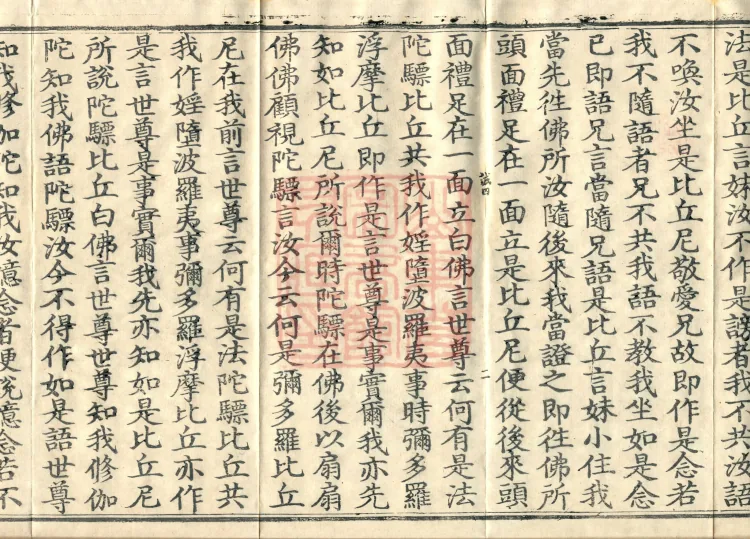 法是比丘言妹汝不作是説者我不共汝語
不喚汝坐是比丘尼敬愛兄故即作是念若
我不隨語者兄不共我語不教我坐如是念
已即語兄言當隨兄語是比丘言妹小住我
當先徃佛所汝隨後來我當證之即徃佛所
頭面禮足在一面立是比丘尼便從後來頭
四 二
面禮足在一面立白佛言世尊云何有是法
陀驃比丘共我作婬墮波羅夷事時彌多羅
浮摩比丘即作是言世尊是事實爾我亦先
知如比丘尼所説爾時陀驃在佛後以扇扇
佛佛顧視陀驃言汝今云何是彌多羅比丘
尼在我前言世尊云何有是法陀驃比丘共
我作婬墮波羅夷事彌多羅浮摩比丘亦作
是言世尊是事實爾我先亦知如是比丘尼
所説陀驃比丘白佛言世尊世尊知我修伽
陀知我佛語陀驃汝今不得作如是語世尊
知我修伽陀知我汝憶念者便説憶念若不